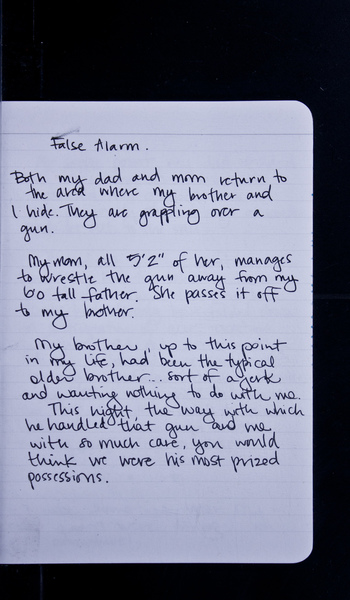 False Alarm.
Both my dad and mom return to
the area where my brother and
I hide. They are grappling over a
gun.
My mom, all 5'2" of her, manages
to wrestle the gun away from my
6'0 tall father. She passes it off
to my brother.
My brother, up to this point
in my life, had been the typical
older brother... sort of a jerk
and wanting nothing to do with me.
This night, the way with which
he handled that gun and me
with so much care, you would
think we were his most prized
possessions.